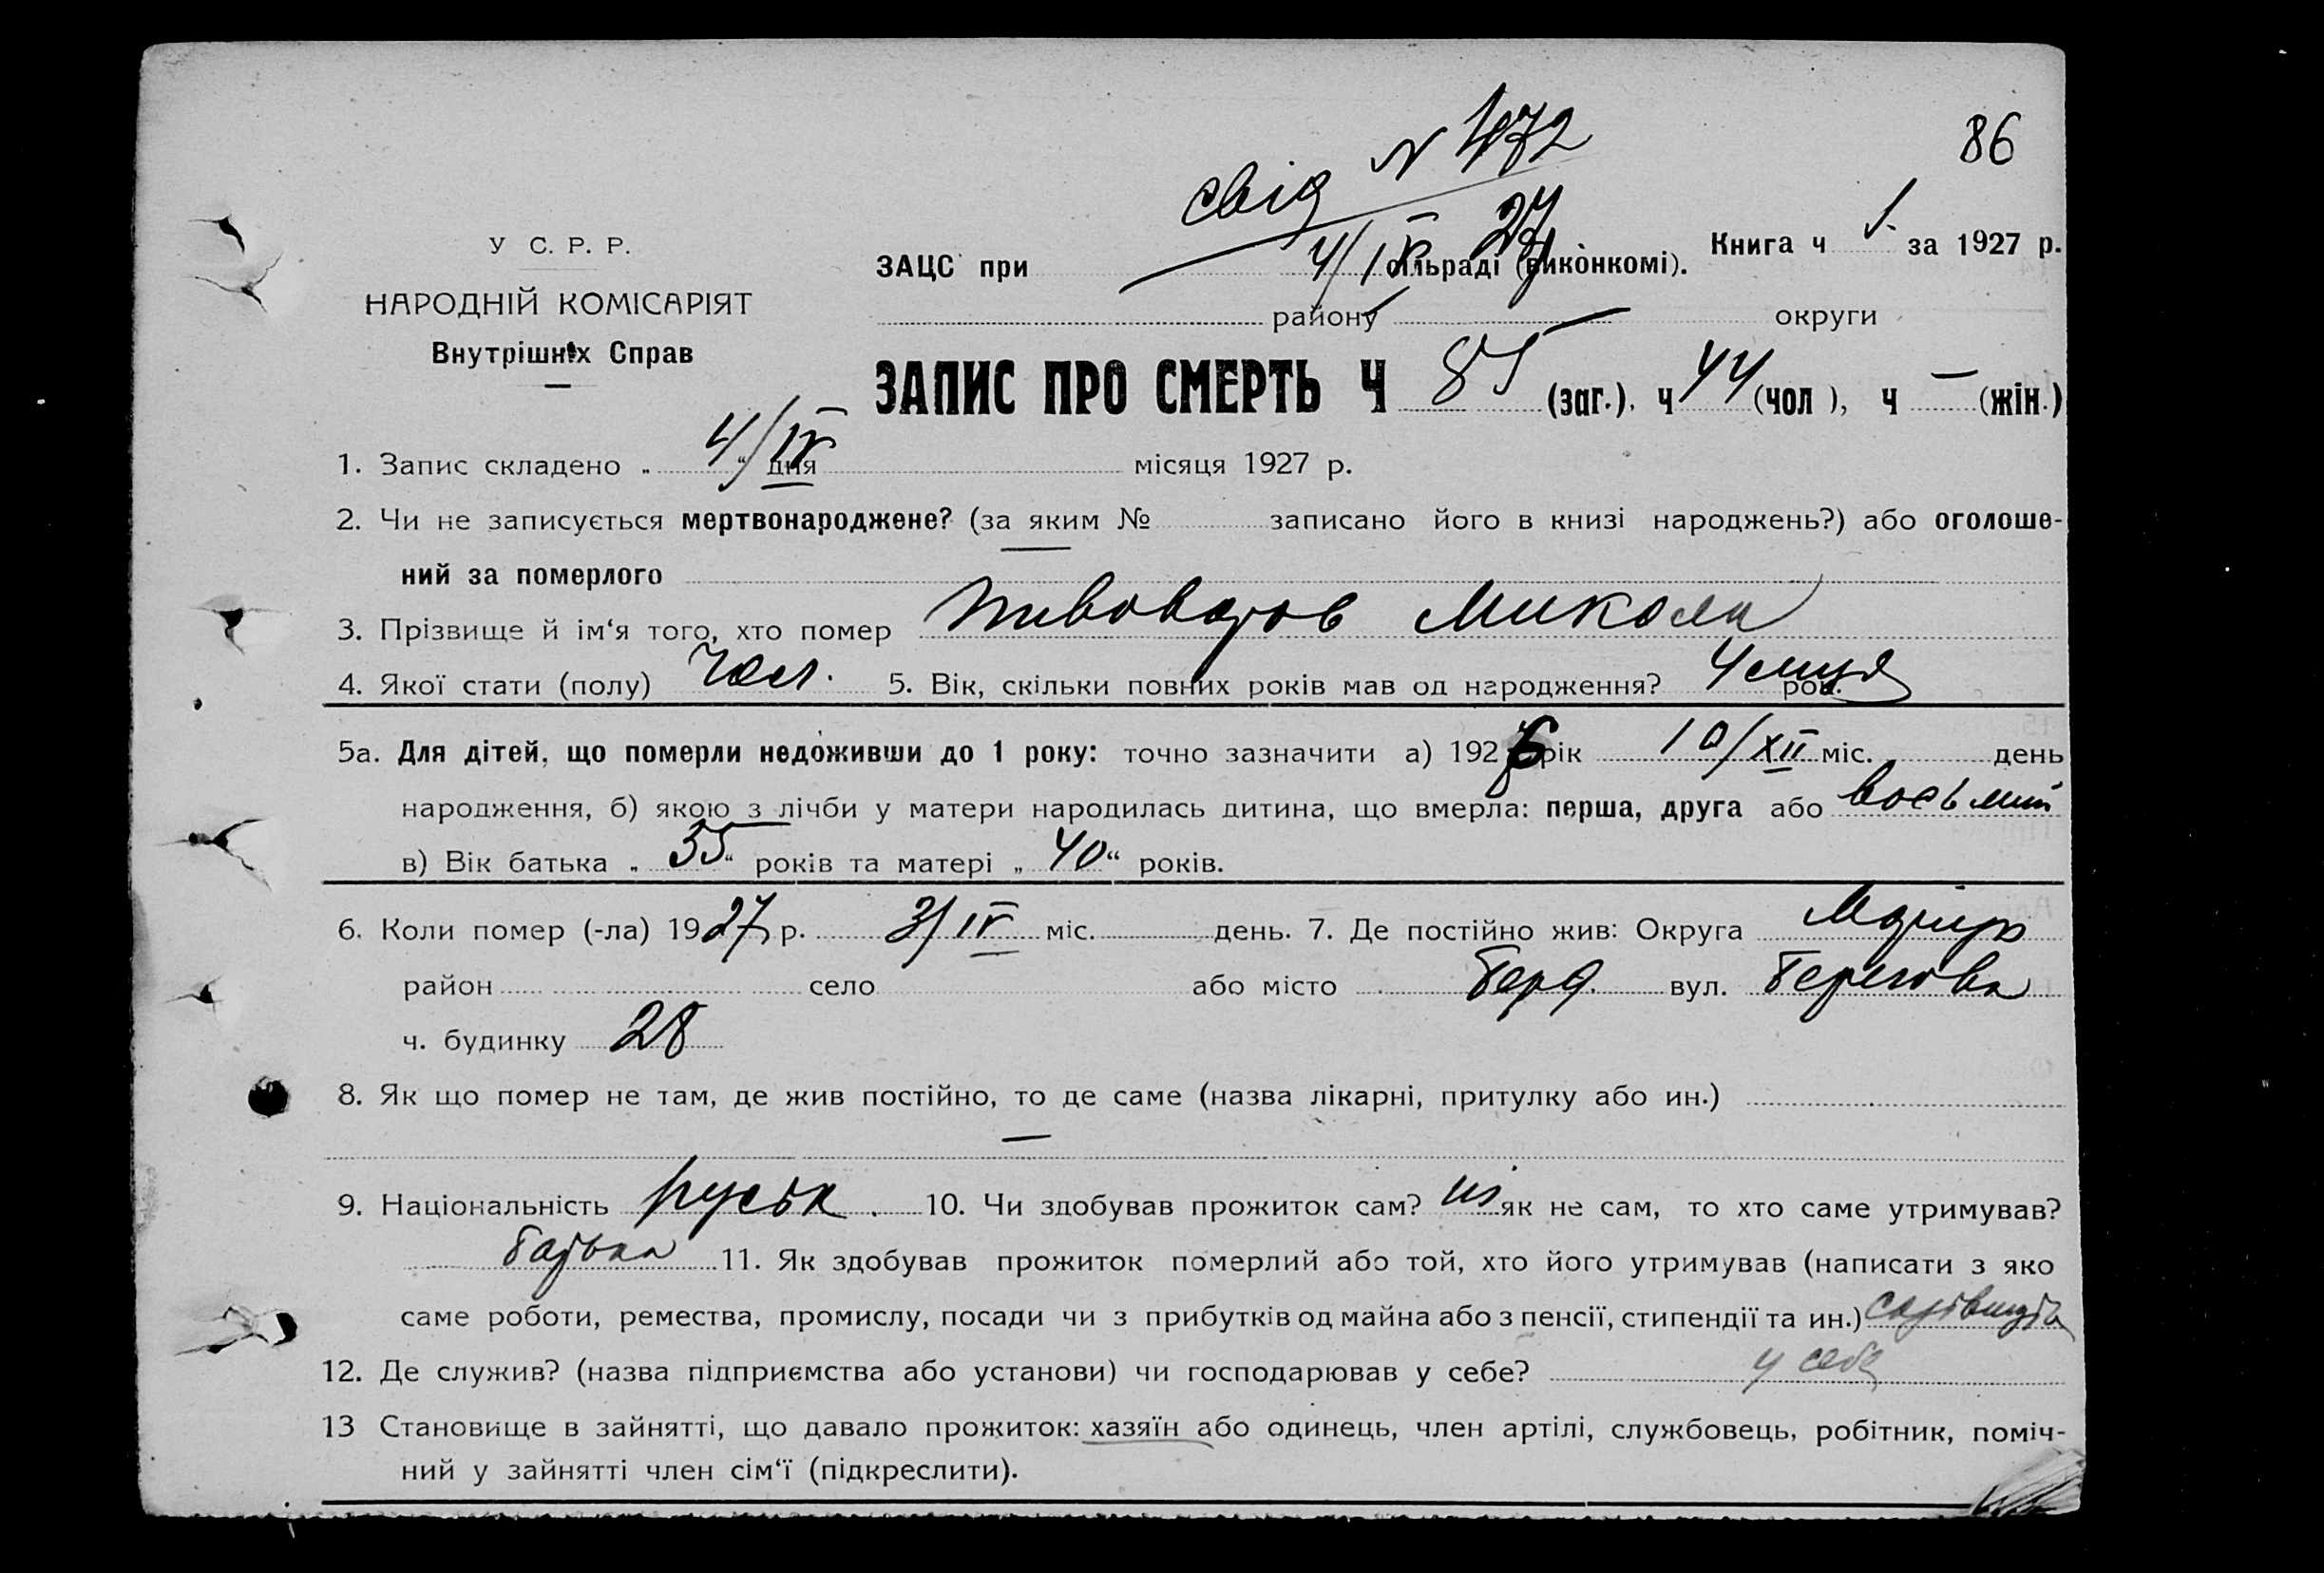 86
свід N 472
4/IV 27
У С. Р. Р.
НАРОДНІЙ КОМІСАРІЯТ
Внутрішніх Справ
ЗАЦС при сільраді (виконкомі). Книга ч 1. за 1927 р.
району округи
ЗАПИС ПРО СМЕРТЬ Ч 85 (заг.), ч 44 (чол ), ч — (жін.)
1. Запис складено „ 4/IV “ дня місяця 1927 р.
2. Чи не записується мертвонароджене? (за яким № записано його в книзі народжень?) або оголоше-
ний за померлого —
3. Прізвище й ім‘я того, хто помер Пивоваров Микола
4. Якої стати (полу) Чол. 5. Вік, скільки повних років мав од народження? 4 місця рок.
5а. Для дітей, що померли недоживши до 1 року: точно зазначити а) 1926 рік 10/XII міс. день
народження, б) якою з лічби у матери народилась дитина, що вмерла: перша, друга або восьмий
в) Вік батька „ 35 “ років та матері „ 40 “ років.
6. Коли помер (-ла) 1927 р. 3/IV міс. день. 7. Де постійно жив: Округа Маріюп
район село або місто Берд. вул. Берегова
ч. будинку 28
8. Як що помер не там, де жив постійно, то де саме (назва лікарні, притулку або ин.)
—
9. Національність руськ. 10. Чи здобував прожиток сам? ні як не сам, то хто саме утримував?
батько 11. Як здобував прожиток померлий або той, хто його утримував (написати з яко
саме роботи, ремества, промислу, посади чи з прибутків од майна або з пенсії, стипендії та ин.)
12. Де служив? (назва підприємства або установи) чи господарював у себе? у себе
13 Становище в зайнятті, що давало прожиток: хазяїн або одинець, член артілі, службовець, робітник, поміч-
ний у зайнятті член сім‘ї (підкреслити).